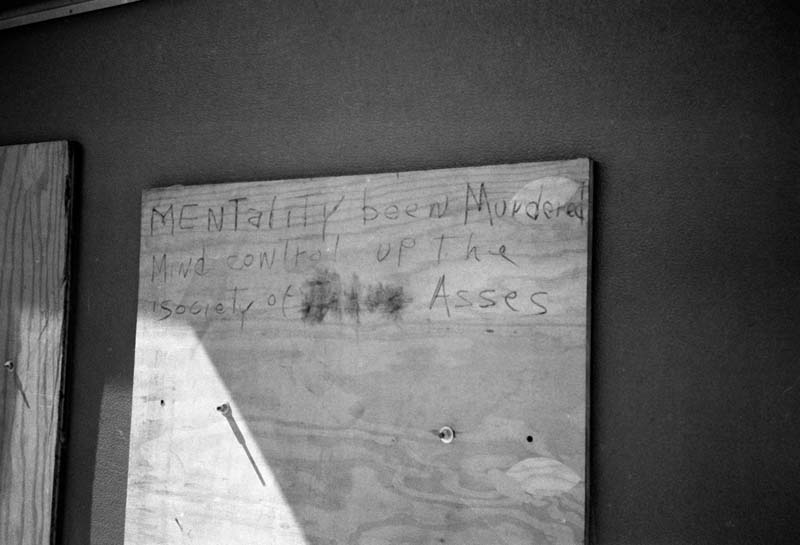 MENTaliTY been Murdered
Mind control up The
society of Asses